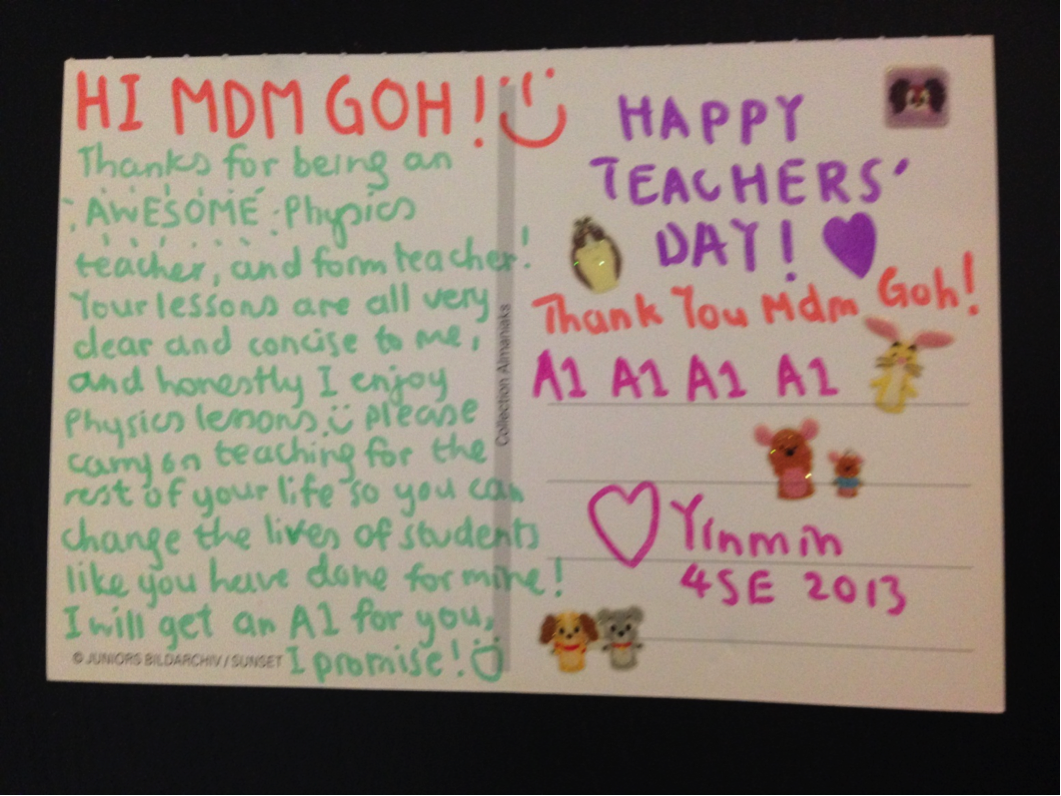 HI MDM GOH!
Thanks for being an
AWESOME Physics
teacher, and form teacher!
Your lessons are all very
clear and concise to me,
and honestly I enjoy
Physics lessons. Please
carry on teaching for the
rest of your life so you can
change the lives of students
like you have done for mine!
I will get an A1 for you,
I promise!
© JUNIORS BILDARCHIV / SUNSET
Collection Almaniaks
HAPPY
TEACHERS'
DAY!
Thank You Mdm Goh!
A1 A1 A1 A1
Yinmin
4SE 2013